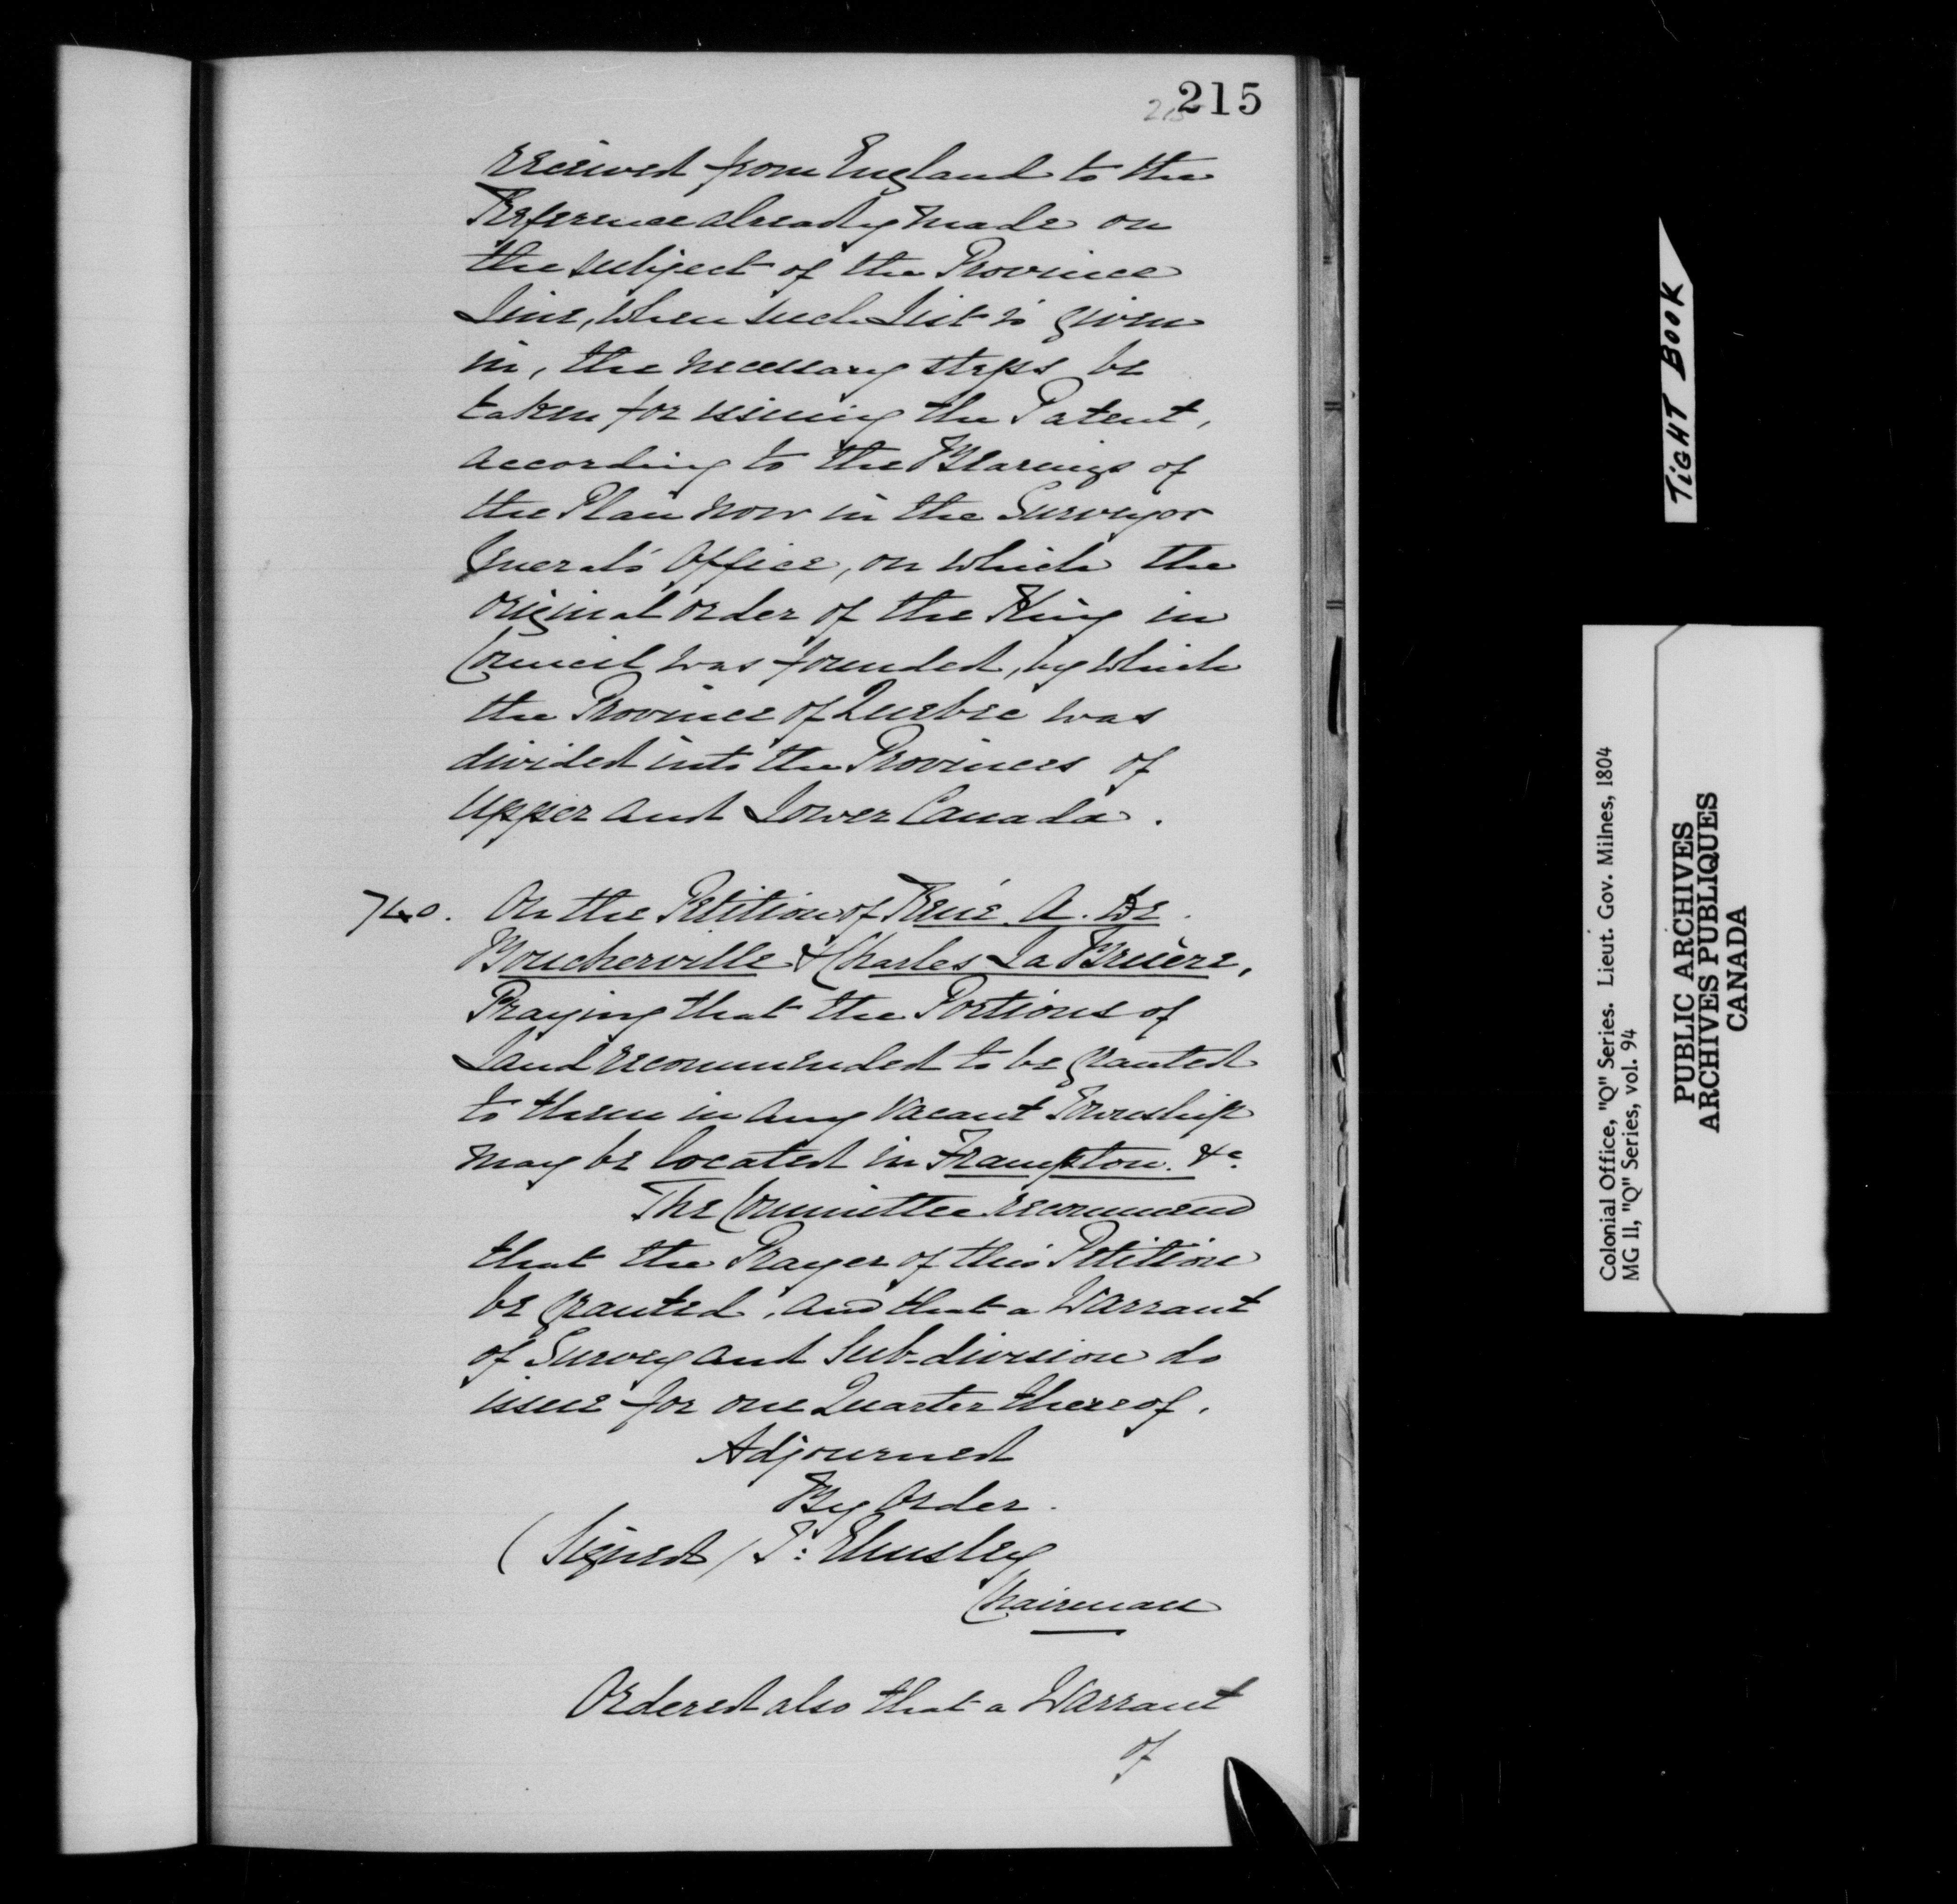 215
215
received from England to the
Reference already made on
the subject of the Province
Line, when such List is given
in, the necessary steps be
taken for issuing the Patent,
according to the Bearings of
the Plan now in the Surveyor
General's Office, on which the
original order of the King in
Council was founded, by which
the Province of Quebec was
divided into the Provinces of
Upper and Lower Canada.
740. On the Petition of René A. De
Boucherville & Charles La Bruère,
Praying that the Portions of
Land recommended to be granted
to them in any vacant Township
may be located in Frampton. &c
The Committee recommend
that the Prayer of this Petition
be granted, and that a Warrant
of Survey and Sub-division do
issue for one Quarter thereof.
Adjourned
By Order.
(Signed) J: Elmsley
Chairman
Ordered also that a Warrant
of
TIGHT BOOK
Colonial Office, "Q" Series. Lieut. Gov. Milnes, 1804
MG 11, "Q" Series, vol. 94
PUBLIC ARCHIVES
ARCHIVES PUBLIQUES
CANADA